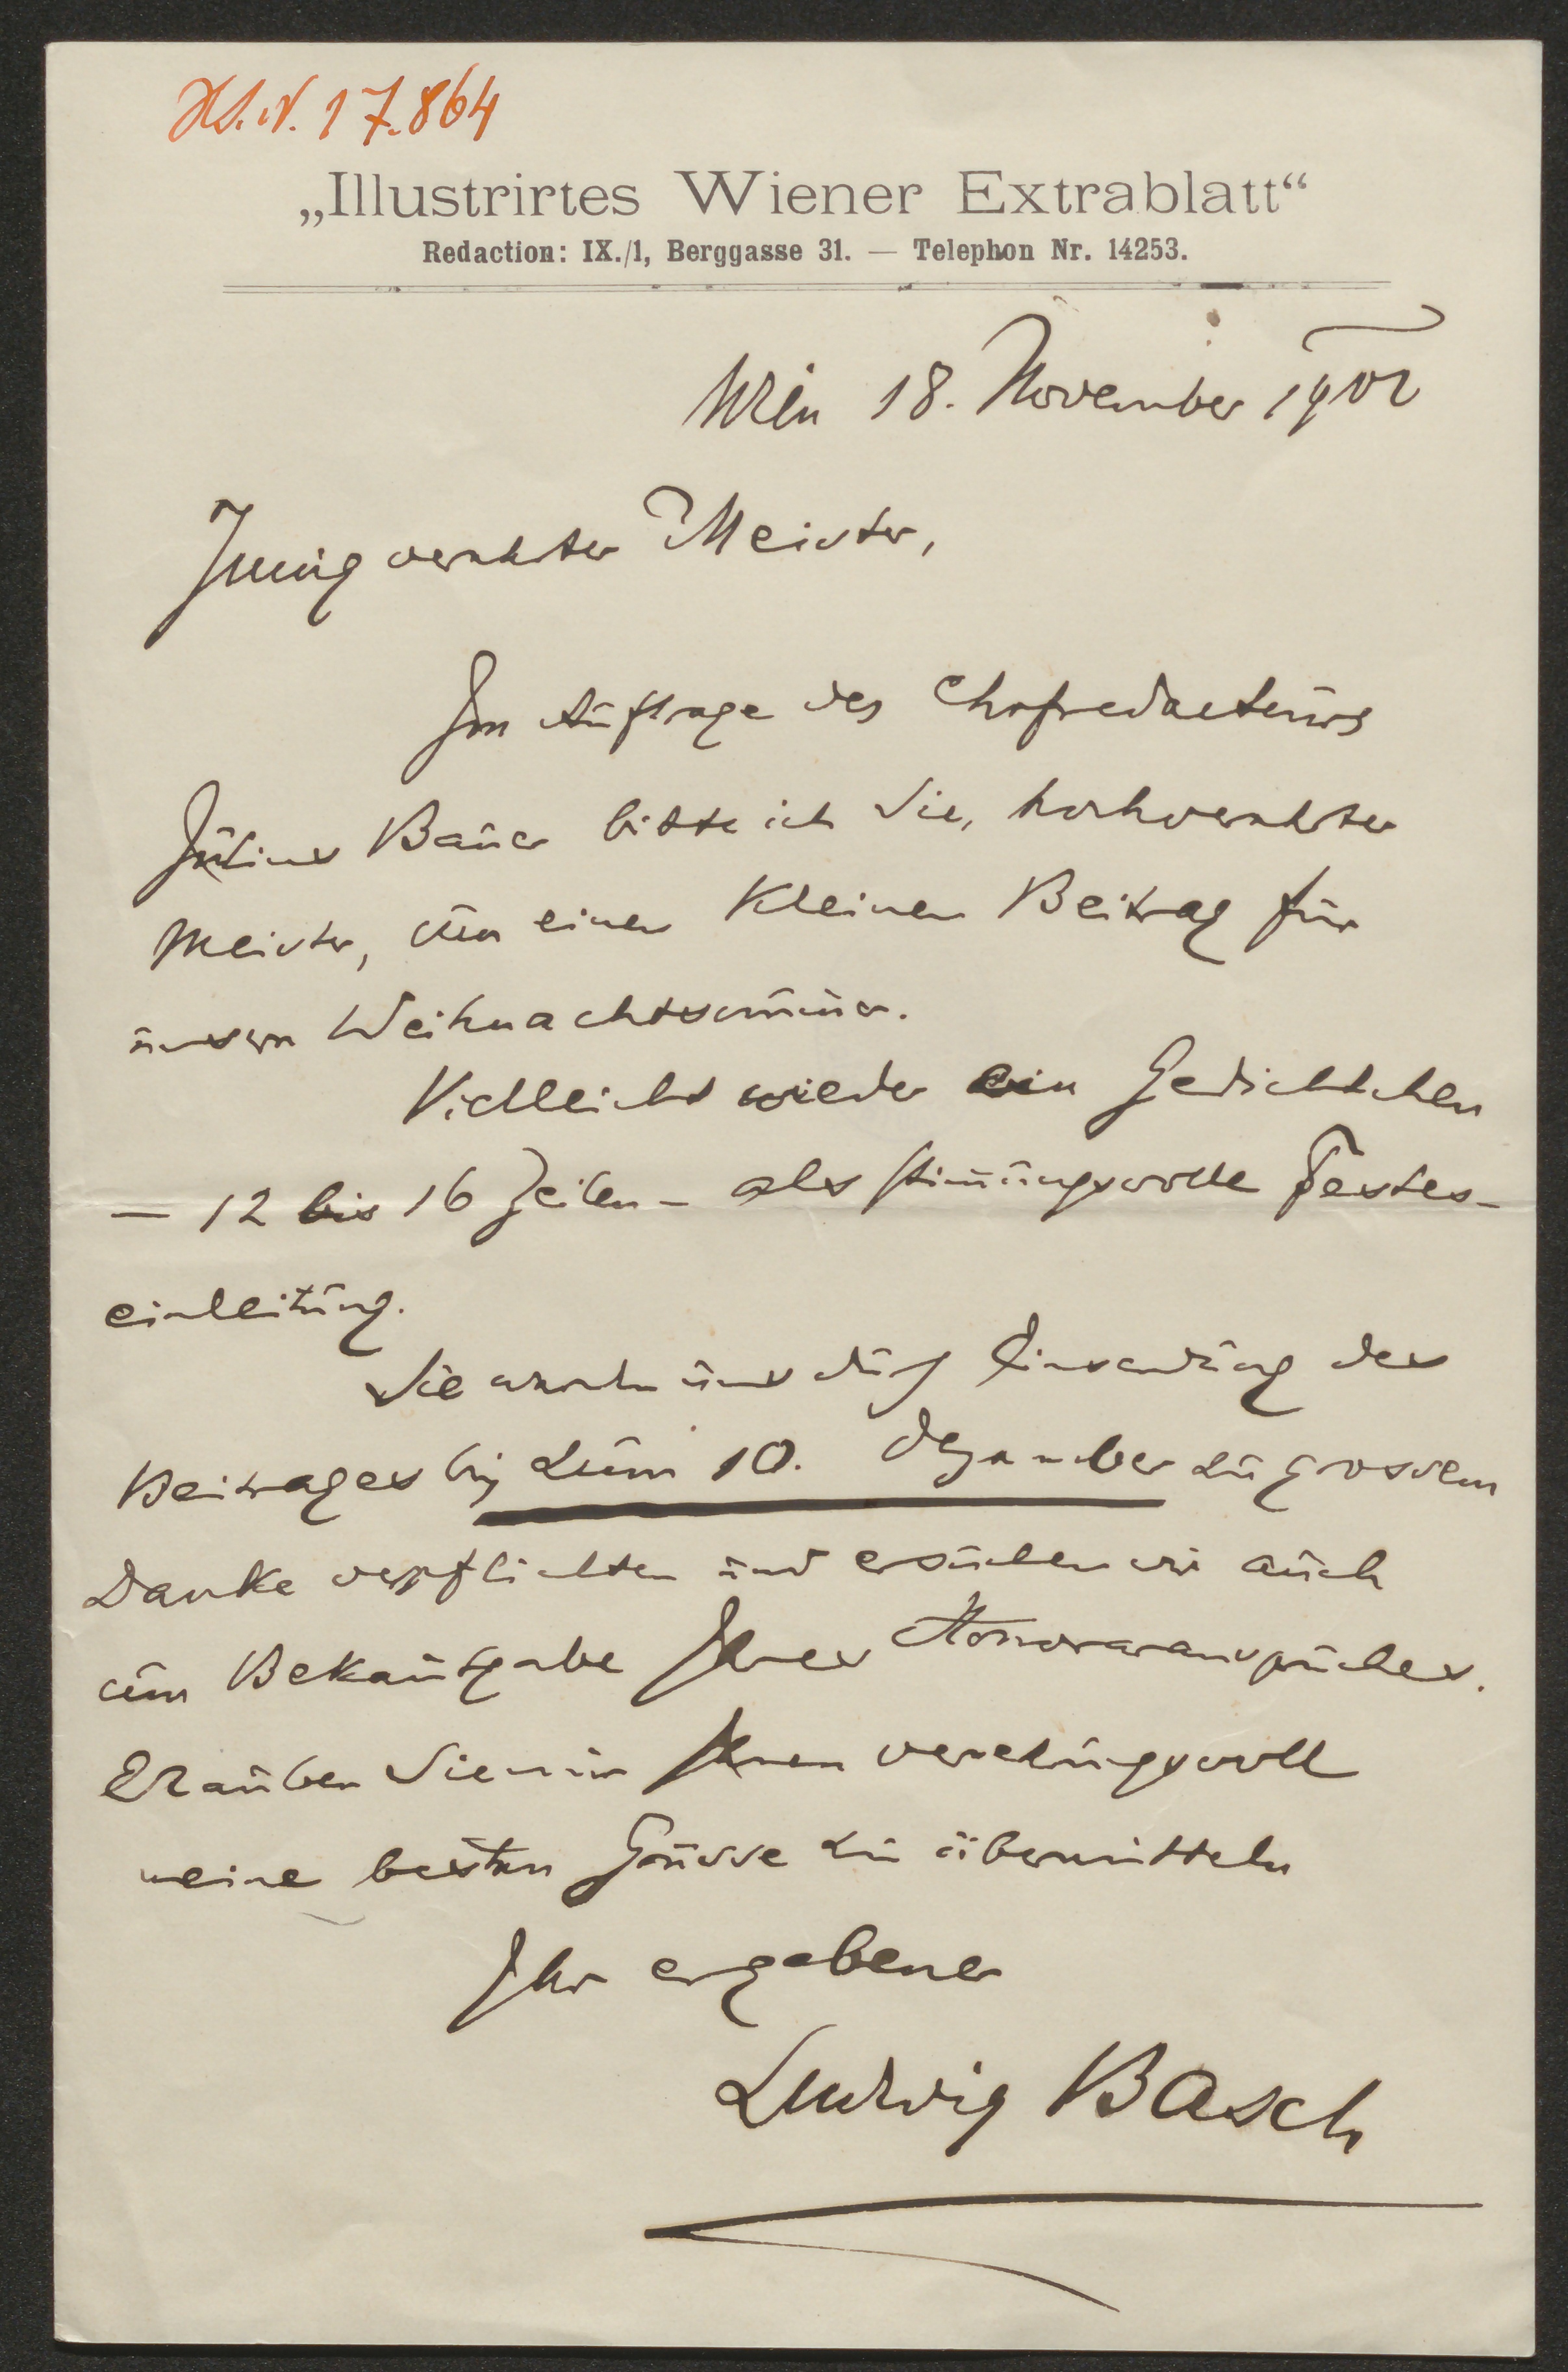 H.I.N. 17.864
„Illustrirtes Wiener Extrablatt“
Redaction: IX./1, Berggasse 31. — Telephon Nr. 14253.
Wien 18. November 1902
Innig verehrter Meister,
Im Auftrage des Chefredacteurs
Julius Bauer bitte ich Sie, hochverehrter
Meister, um einen kleinen Beitrag für
unsern Weihnachtsnummer.
Vielleicht wieder ein Gedichtchen
— 12 bis 16 Zeilen — als stimmungsvolle Festes-
einleitung.
Sie würden uns durch Einsendung des
Beitrages bis zum 10. Dezember zu grossem
Danke verpflichten und ersuchen wir auch
um Bekanntgabe Ihres Honoraranspruches.
Erlauben Sie mir Ihnen verehrungsvoll
meine besten Grüsse zu übermitteln
Ihr ergebener
Ludwig Basch